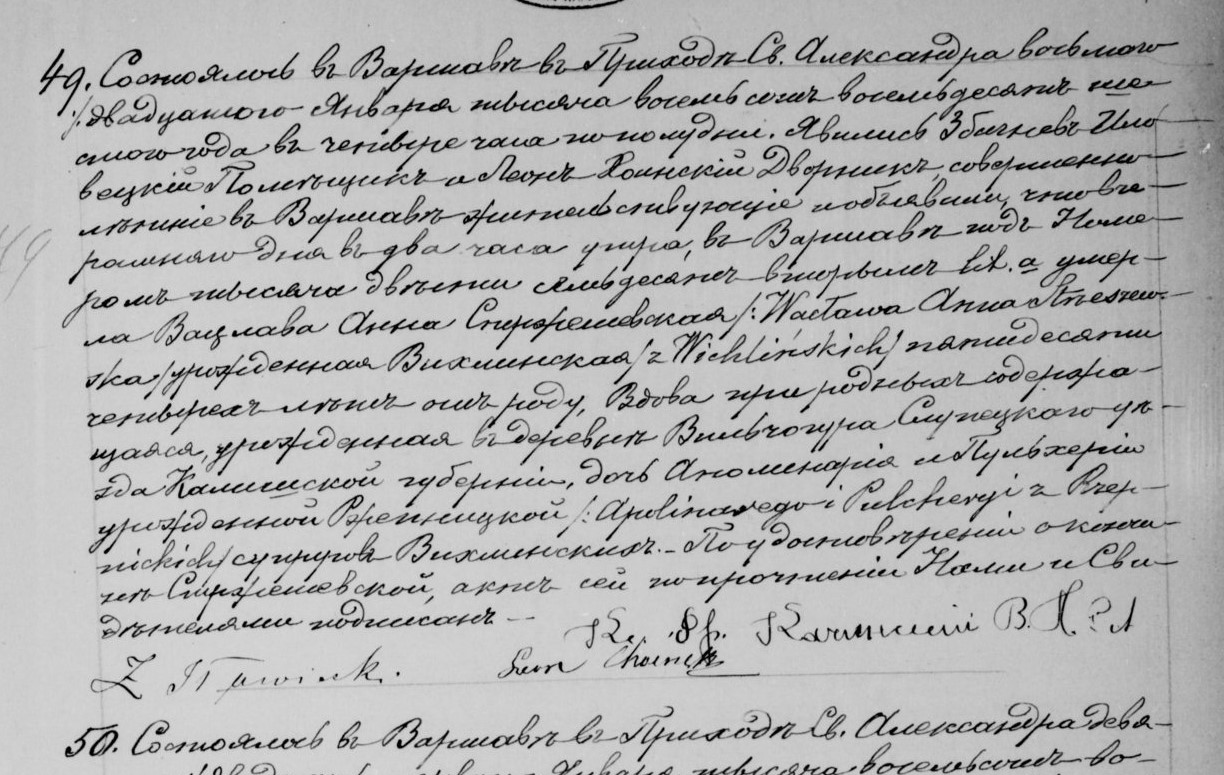 49. Состоялось въ Варшавѣ въ Приходѣ Св. Александра восьмаго
/:двадцатого Января тысяча восемьсотъ восемьдесятъ ше-
стого года въ четыре часа по полудни. Явились Збигневъ Ило
вецкій Помѣщикъ и Леонъ Хоинскій Дворникъ, совершенно-
лѣтніе въ Варшавѣ жительствующіе и объявили, что вче-
рашняго дня въ два часа утра, въ Варшавѣ подъ Номе-
ромъ тысяча двѣсти семьдесятъ вторымъ lit. a умер-
ла Вацлава Анна Стржешевская /:Wacława Anna Strzeszew-
ska/ урожденная Вихлинская /z Wichlińskich/ пятидесяти
четырехъ лѣтъ отъ роду, Вдова при родныхъ содержа-
щаяся, урожденная въ деревнѣ Вильчогура Слупецкаго уѣ-
зда Калишской губерніи, дочь Аполинарія и Пульхеріи
урожденной Ржепницкой /:Apolinarego i Pulcheryi z Rzep-
nickich/ супруговъ Вихлинскихъ. - По удостовѣреніи о кончи-
нѣ Стржешевской, актъ сей по прочтеніи Нами и Сви-
дѣтелями подписанъ --
Leon Choinski
50. Состоялось въ Варшавѣ въ Приходѣ Св. Александра девя-
Января тысяча восемьсотъ во-